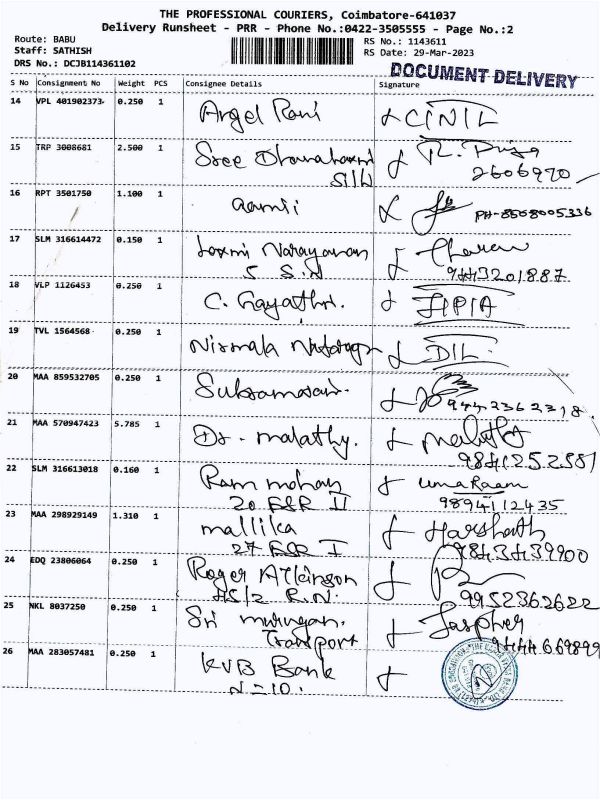 THE PROFESSIONAL COURIERS, Coimbatore-641037
Delivery Runsheet - PRR - Phone No.:0422-3505555 - Page No.:2
Route: BABU
Staff: SATHISH
DRS No.: DCJB114361102
RS No.: 1143611
RS Date: 29-Mar-2023
DOCUMENT DELIVERY
S No Consignment No Weight PCS Consignee Details Signature
14 VPL 401902373 0.250 1 Angel Rani
15 TRP 3008681 2.500 1 Sree
Silk 2606970
16 RPT 3501750 1.100 1 PH-8508005336
17 SLM 316614472 0.150 1 Laxmi Narayanan Charan
S S.N 9443201887
18 VLP 1126453 0.250 1 C. Gayathri.
19 TVL 1564568 0.250 1 Nirmala DIL.
20 MAA 859532705 0.250 1
9442362318
21 MAA 570947423 5.785 1 Dr. malathy.
9841252581
22 SLM 316613018 0.160 1 Ram mohan uma Raam
20 E&R II 9894112435
23 MAA 298929149 1.310 1 mallika Harshath
27 E&R I 9843439900
24 EDQ 23806064 0.250 1 Roger Atkinson
HS/2 R.N. 9952362622
25 NKL 8037250 0.250 1 Sri murugan. Jaspher
Transport 9444669899
26 MAA 283057481 0.250 1 KVB Bank
N=10.